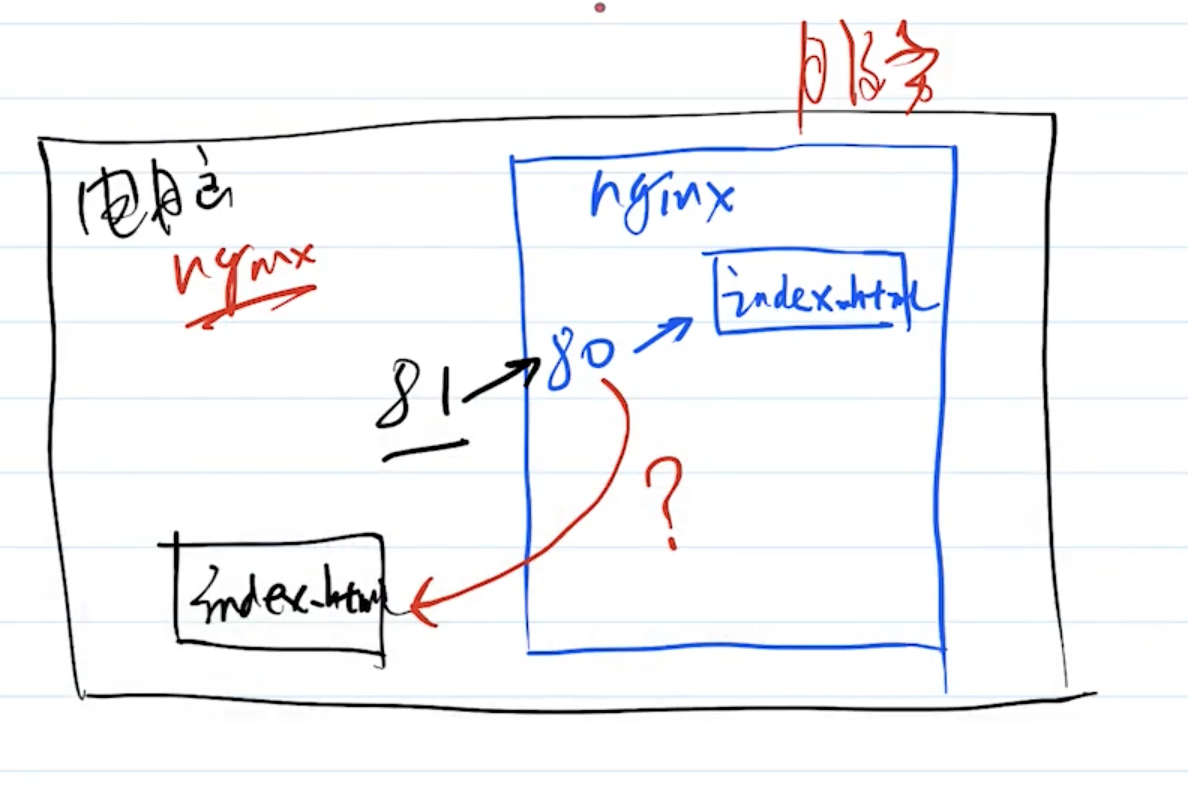 电脑
nginx
nginx
index.html
80
81
?
index.html